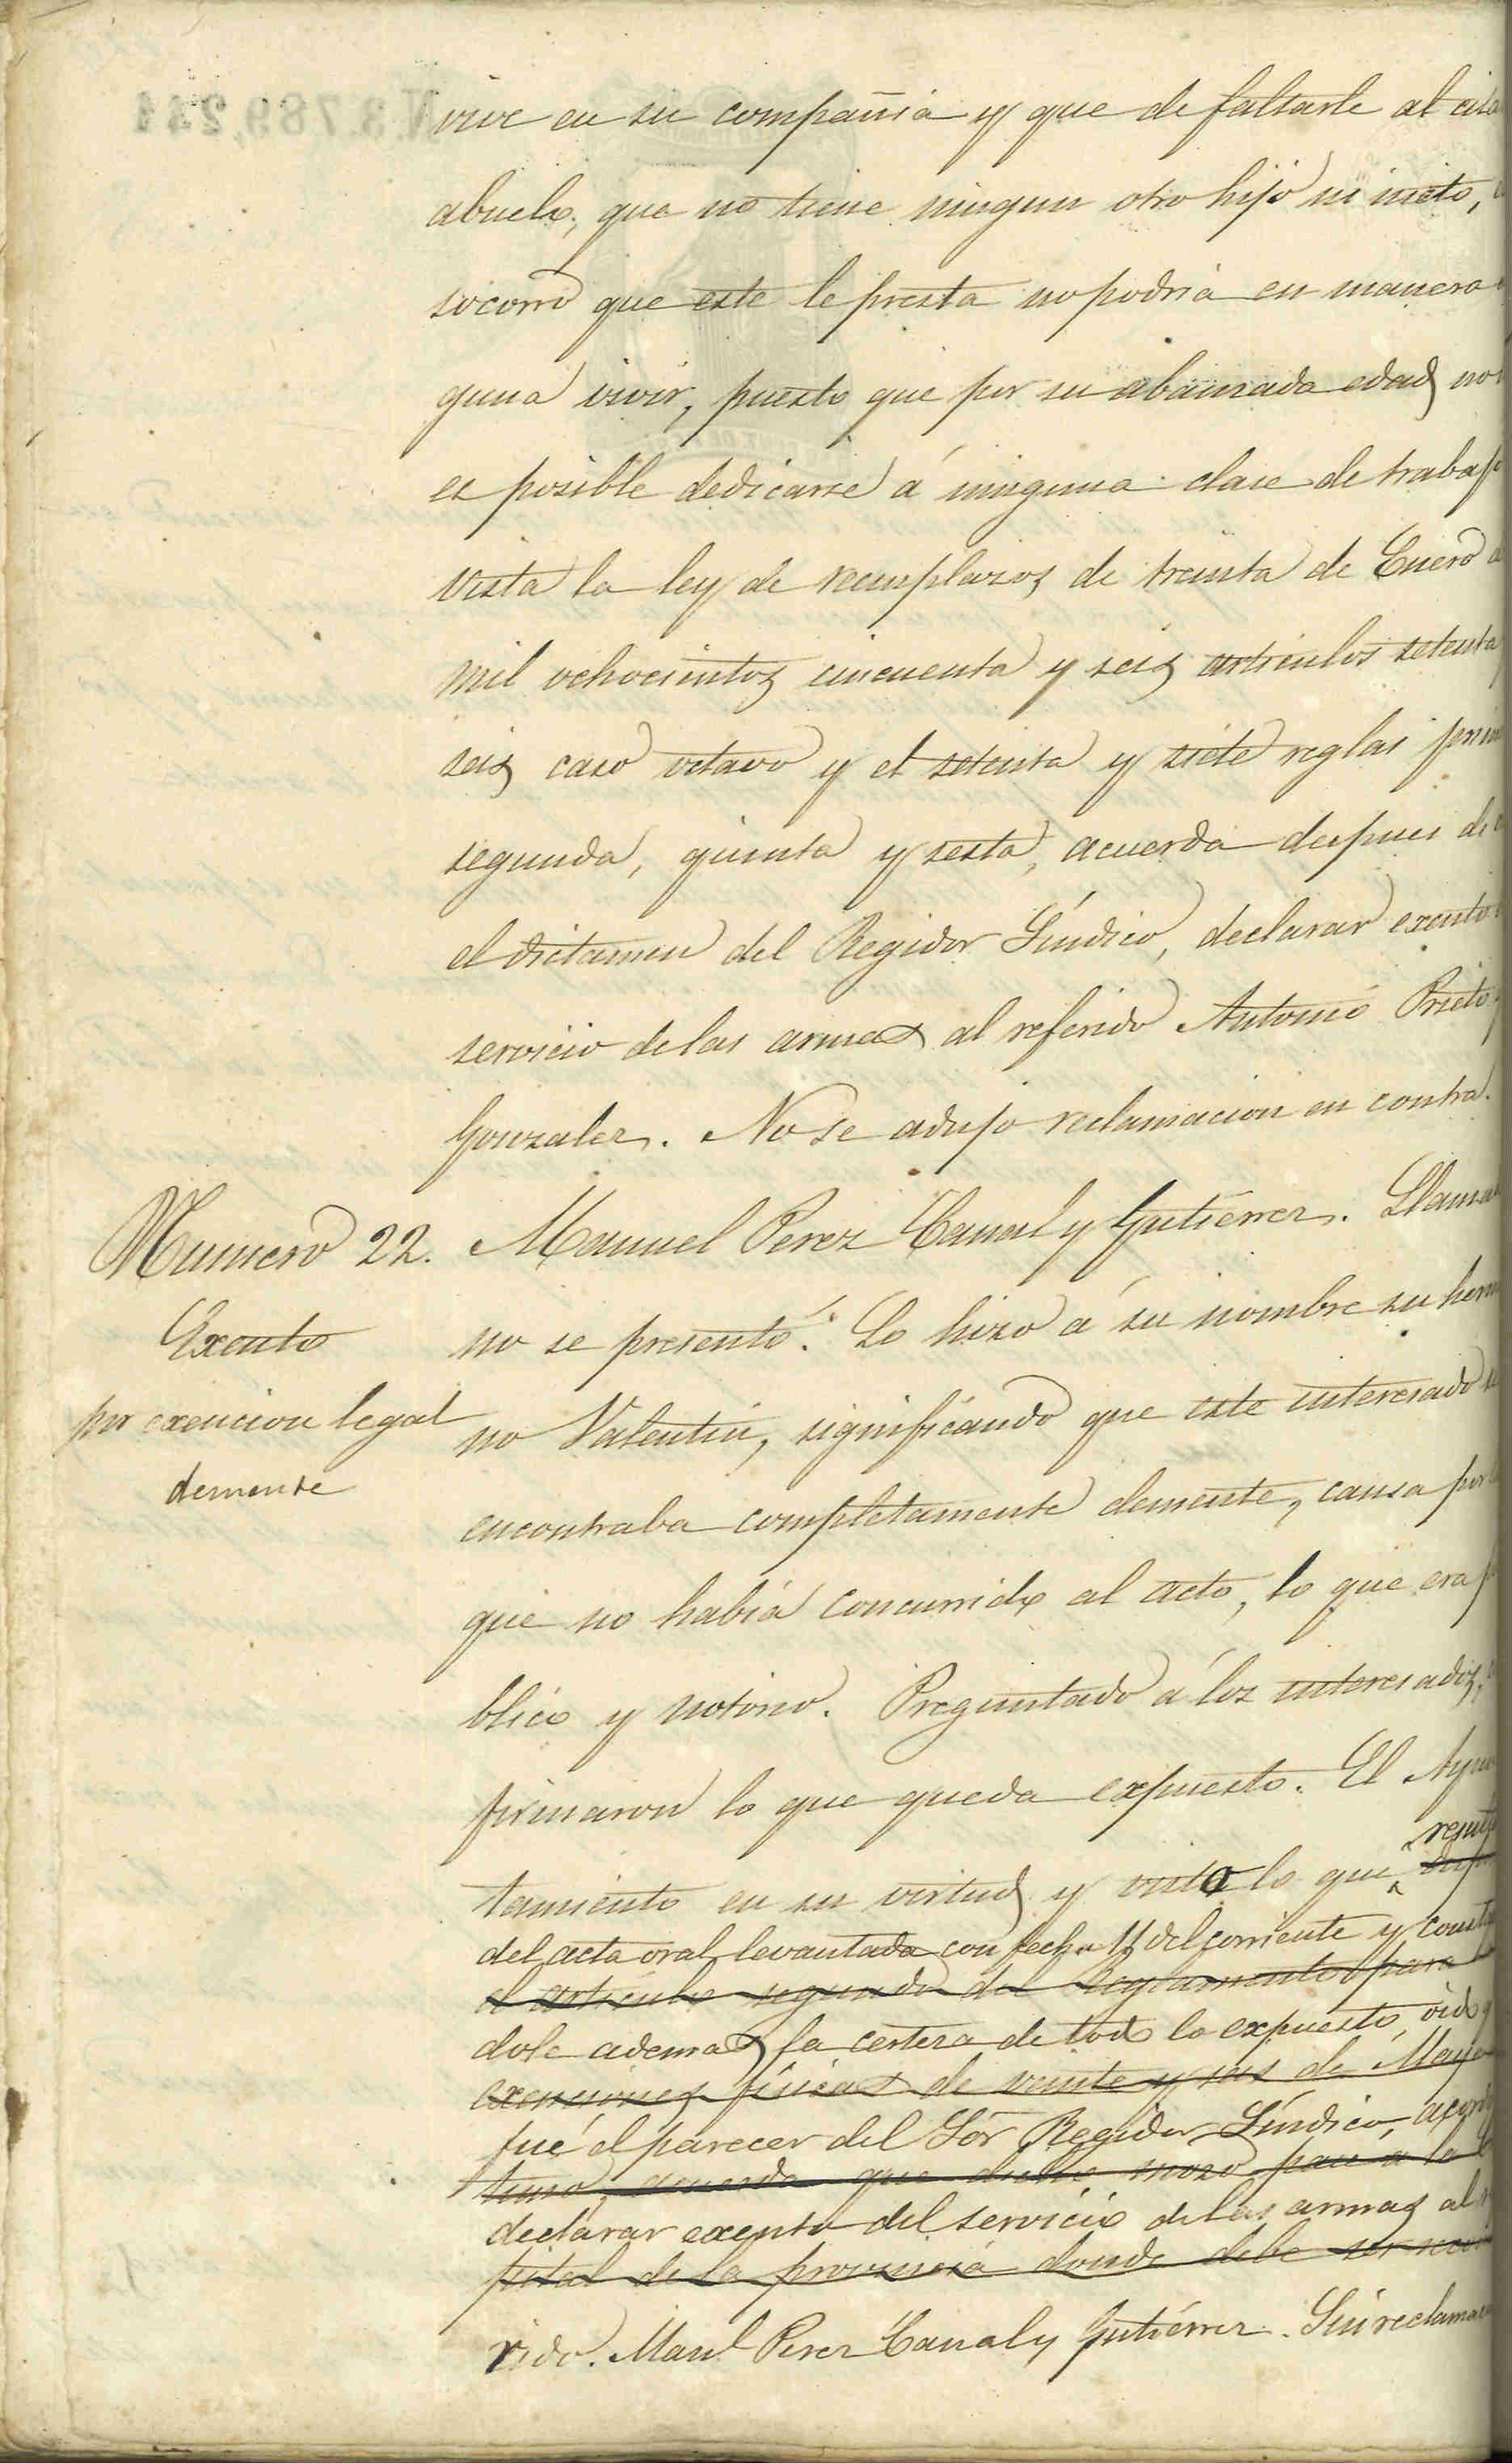 N.3.789,244
vive en su compañia y que de faltarle al cita
abuelo, que no tiene ningun otro hijo ni nieto,
socorro que este le presta no podria en manera
guna vivir, puesto que por su abanzada edad no
es posible dedicarse á ninguna clase de trabajo
vista la ley de reemplazos de treinta de Enero
mil ochocientos cincuenta y seis artículos setenta y
seis caso octavo y el setenta y siete reglas prim
segunda, quinta y sesta, acuerda despues de
el dictamen del Regidor Síndico, declarar exento
servicio de las armas al referido Antonio Prieto y
Gonzalez. No se adujo reclamacion en contra.
Numero 22. Manuel Perez Canal y Gutiérrez. Llama
Exento
por exencion legal
demente
no se presentó. Lo hizo á su nombre su herma
no Valentin, significando que este interesado se
encontraba completamente demente, causa por
que no habia concurrido al acto, lo que era pú
blico y notorio. Preguntado á los interesados,
firmaron lo que queda expuesto. El Ayun
tamiento en su virtud y visto lo que
result
del acta oral levantada con fecha 11 del corriente y constan
el artículo segundo del Reglamento para
dole ademas la certeza de todo lo expuesto, oido q
exenciones físicas de veinte y seis de Mayo
fué el parecer del Sor Regidor Síndico, acordó
timo, acuerda que dicho mozo pase a la
declarar exento del servicio de las armas al
pital de la provincia donde debe ser reco
rido. Manl Perez Canal y Gutiérrez. Sin reclama